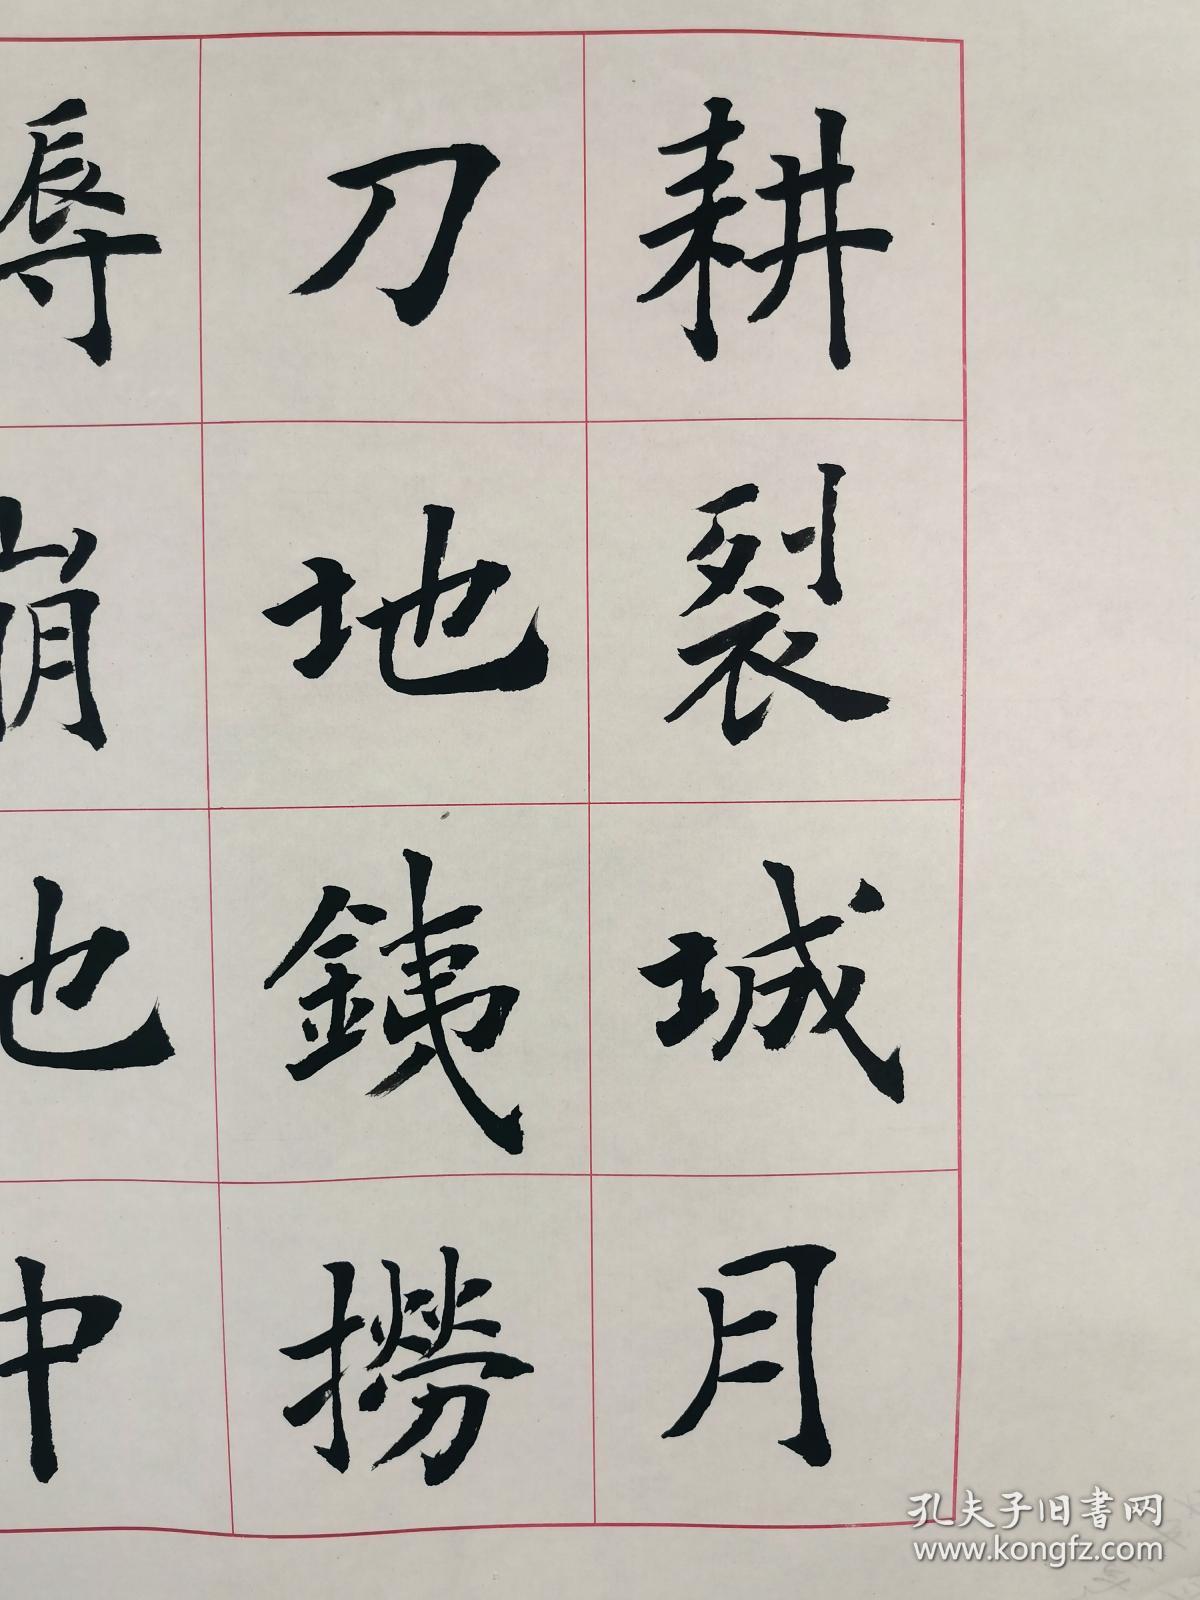 刀耕
崩地裂
銕城
中撈月
孔夫子旧書网
www.kongfz.com